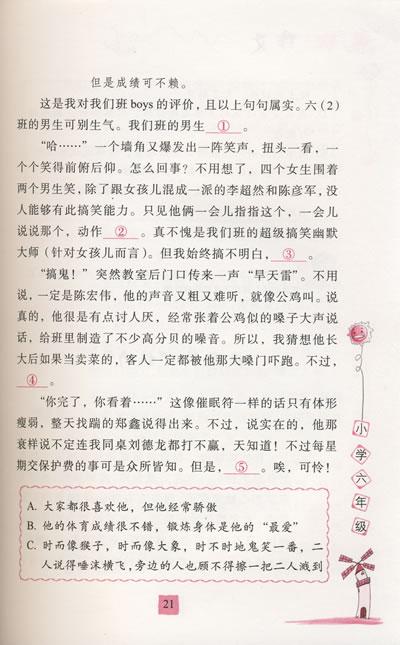 但是成绩可不赖。
这是我对我们班boys的评价，且以上句句属实。六（2）
班的男生可别生气。我们班的男生 ① 。
“哈……”一个墙角又爆发出一阵笑声，扭头一看，一
个个笑得前俯后仰。怎么回事？不用想了，四个女生围着
两个男生笑，除了跟女孩儿混成一派的李超然和陈彦军，没
人能够有此搞笑能力。只见他俩一会儿指指这个，一会儿
说说那个，动作 ② 。真不愧是我们班的超级搞笑幽默
大师（针对女孩儿而言）。但我始终搞不明白， ③ 。
“搞鬼！”突然教室后门口传来一声“旱天雷”。不用
说，一定是陈宏伟，他的声音又粗又难听，就像公鸡叫。说
真的，他很是有点讨人厌，经常张着公鸡似的嗓子大声说
话，给班里制造了不少高分贝的噪音。所以，我猜想他长
大后如果当卖菜的，客人一定都被他那大嗓门吓跑。不过，
④ 。
“你完了，你看着……”这像催眠符一样的话只有体形
瘦弱，整天找踹的郑鑫说得出来。不过，说实在的，他那
衰样说不定连我同桌刘德龙都打不赢，天知道！不过每星
期交保护费的事可是众所皆知。但是， ⑤ 。唉，可怜！
A. 大家都很喜欢他，但他经常骄傲
B. 他的体育成绩很不错，锻炼身体是他的“最爱”
C. 时而像猴子，时而像大象，时不时地鬼笑一番，二
人说得唾沫横飞，旁边的人也顾不得擦一把二人溅到
小学六年级
21